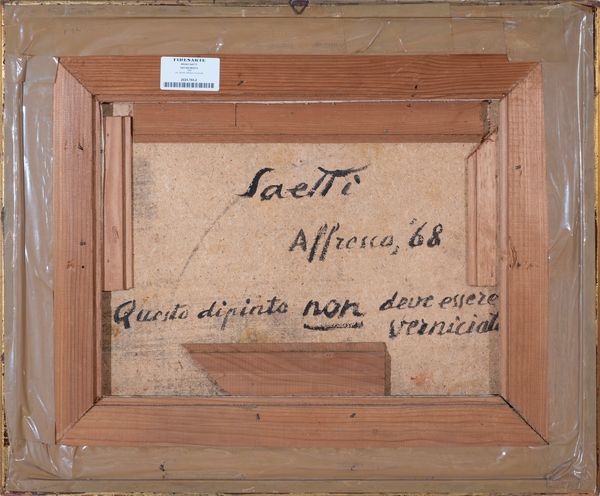 FIRENZARTE
Saetti
Affresco, '68
Questo dipinto non deve essere
verniciato